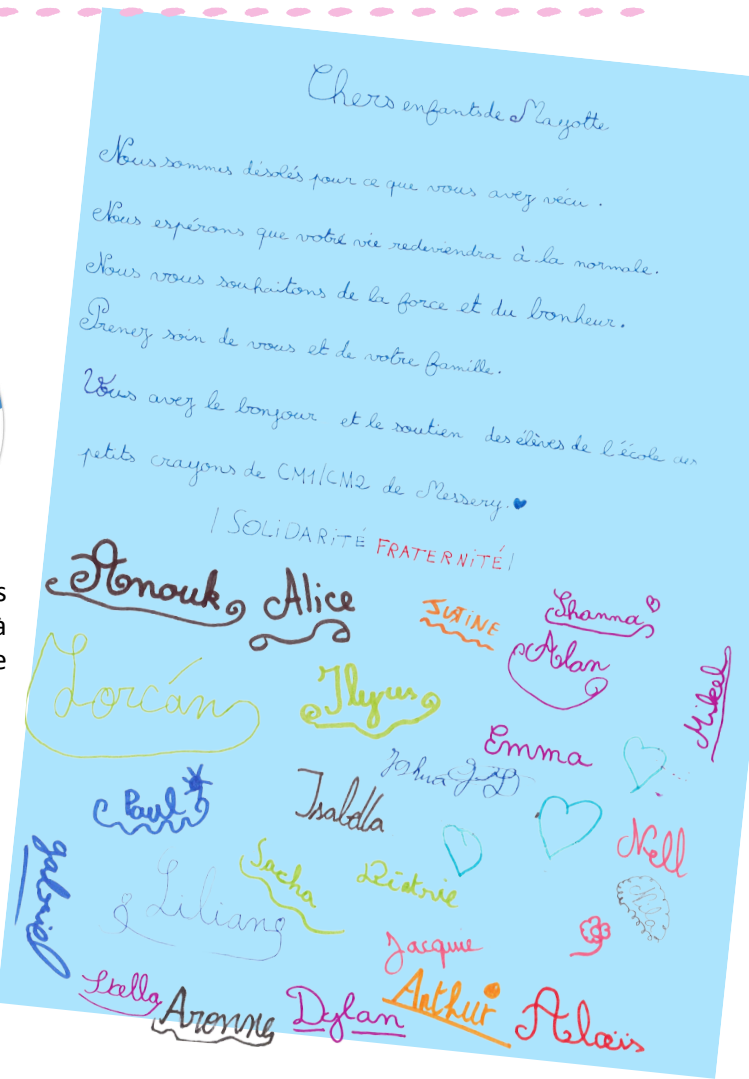 Chers enfants de Mayotte
Nous sommes désolés pour ce que vous avez vécu.
Nous espérons que votre vie redeviendra à la normale.
Nous vous souhaitons de la force et du bonheur.
Prenez soin de vous et de votre famille.
Vous avez le bonjour et le soutien des élèves de l'école des
petits crayons de CM1/CM2 de Messery.
! SOLIDARITÉ FRATERNITÉ!
s
à
e
Anouk Alice
JUTINE
Shanna
Alan
Mikel
Lorcán
Ilyus
Emma
Joshua
Paul
Isabella
Nell
gabriel
Sacha
Liliang
Jacquie
Stella
Aronne
Dylan
Arthur
Aloïs